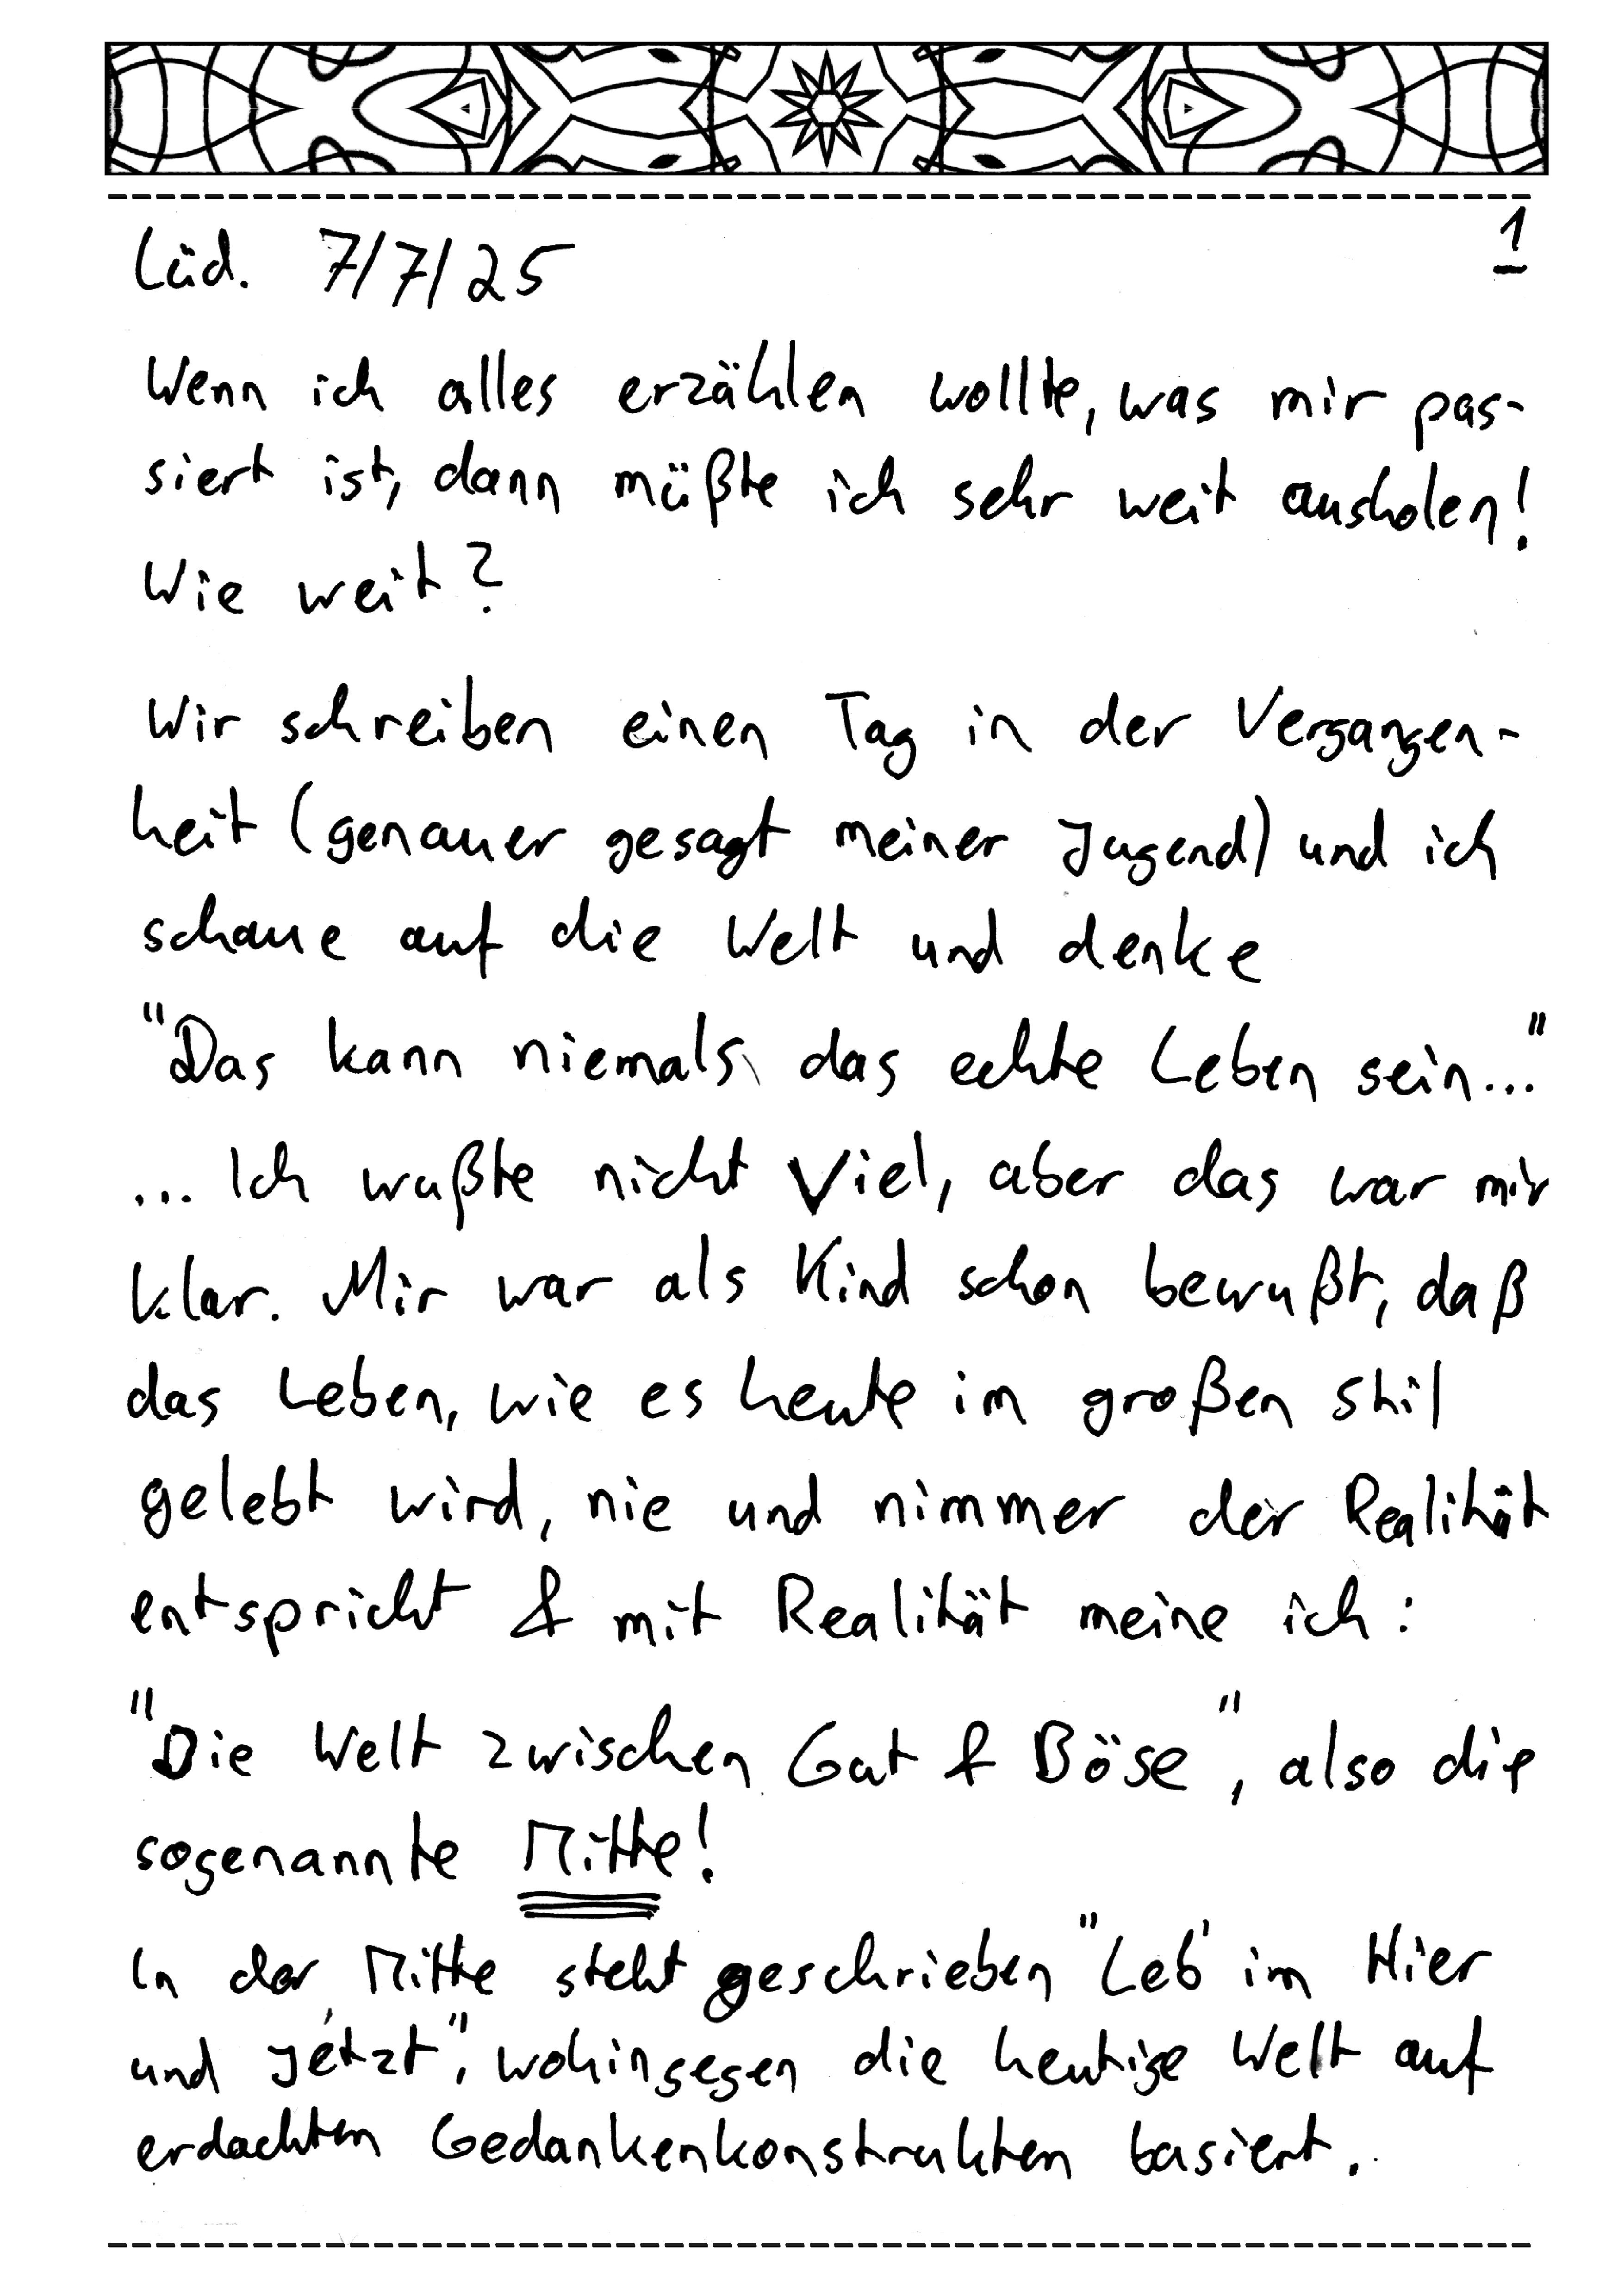 Lüd. 7/7/25
1
Wenn ich alles erzählen wollte, was mir pas-
siert ist, dann müßte ich sehr weit ausholen!
Wie weit?
Wir schreiben einen Tag in der Vergangen-
heit (genauer gesagt meiner Jugend) und ich
schaue auf die Welt und denke
"Das kann niemals das echte Leben sein..."
... Ich wußte nicht Viel, aber das war mir
klar. Mir war als Kind schon bewußt, daß
das Leben, wie es heute im großen Stil
gelebt wird, nie und nimmer der Realität
entspricht & mit Realität meine ich:
"Die Welt zwischen Gut & Böse", also die
sogenannte Mitte!
In der Mitte steht geschrieben "Leb' im Hier
und Jetzt", wohingegen die heutige Welt auf
erdachten Gedankenkonstrukten basiert.